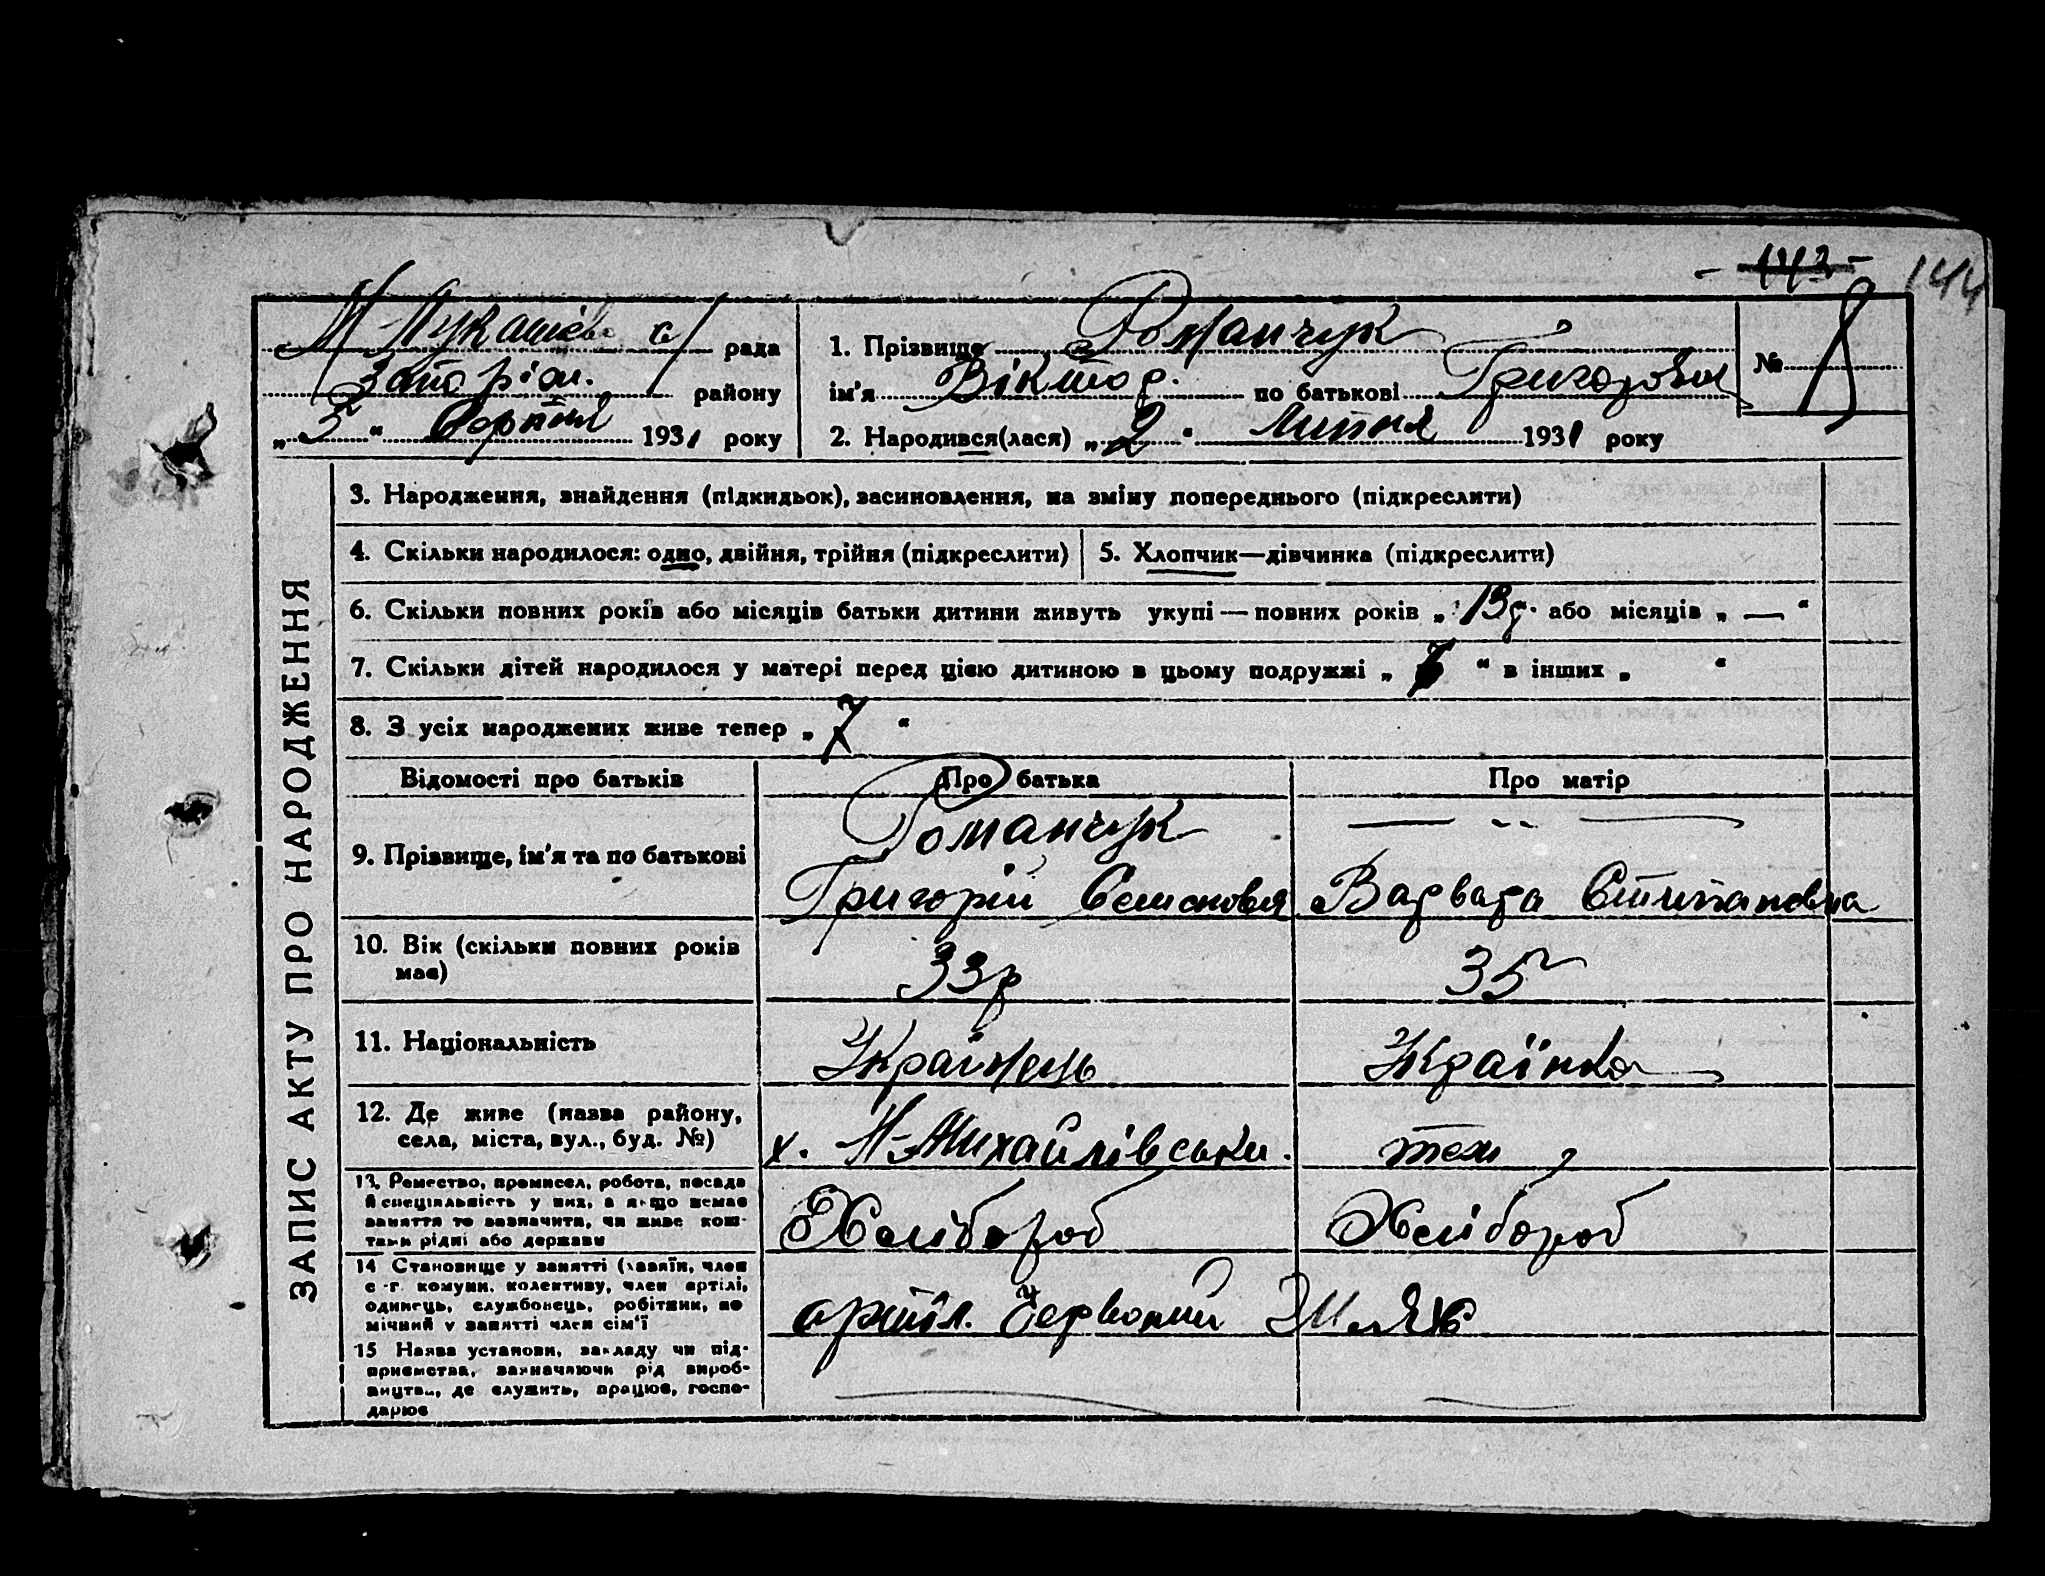 - 143 - 144
М-Лукашівс с/ рада
Запоріз. району
„ 5 “ Серпня 1931 року
1. Прізвище Романчук
ім'я Віктор. по батькові Григоровіч
№ 8
2. Народився(лася) „ 2 “ Липня 1931 року
ЗАПИС АКТУ ПРО НАРОДЖЕННЯ
3. Народження, знайдення (підкидьок), засиновлення, на зміну попереднього (підкреслити)
4. Скільки народилося: одно, двійня, трійня (підкреслити)
5. Хлопчик—дівчинка (підкреслити)
6. Скільки повних років або місяців батьки дитини живуть укупі — повних років „ 13 р. або місяців „ — “
7. Скільки дітей народилося у матері перед цією дитиною в цьому подружжі „ “ в інших „ “
8. З усіх народжених живе тепер „ 7 “
Відомості про батьків
Про батька
Про матір
9. Прізвище, ім'я та по батькові
Романчук
Григорій Семеновія
— " —
Варвара Стипановна
10. Вік (скільки повних років
має)
33р
35
11. Національність
Українець
Українка
12. Де живе (назва району,
села, міста, вул., буд. №)
х. М-Михайлівськи.
теж
13. Ремество, промисел, робота, посада
й спеціяльність у них, а якщо немає
заняття то зазначити, чи живе кош-
тами рідні або держави
Хлібороб
Хлібороб
14 Становище у занятті (хазяїн, член
с.-г. комуни, колективу, член артілі,
одинець, службовець, робітник, по
мічний у занятті член сім'ї
артіл. Червоний Шлях
15 Назва установи, закладу чи під-
приємства, зазначаючи рід вироб-
ництва, де служить, працює, госпо-
дарює